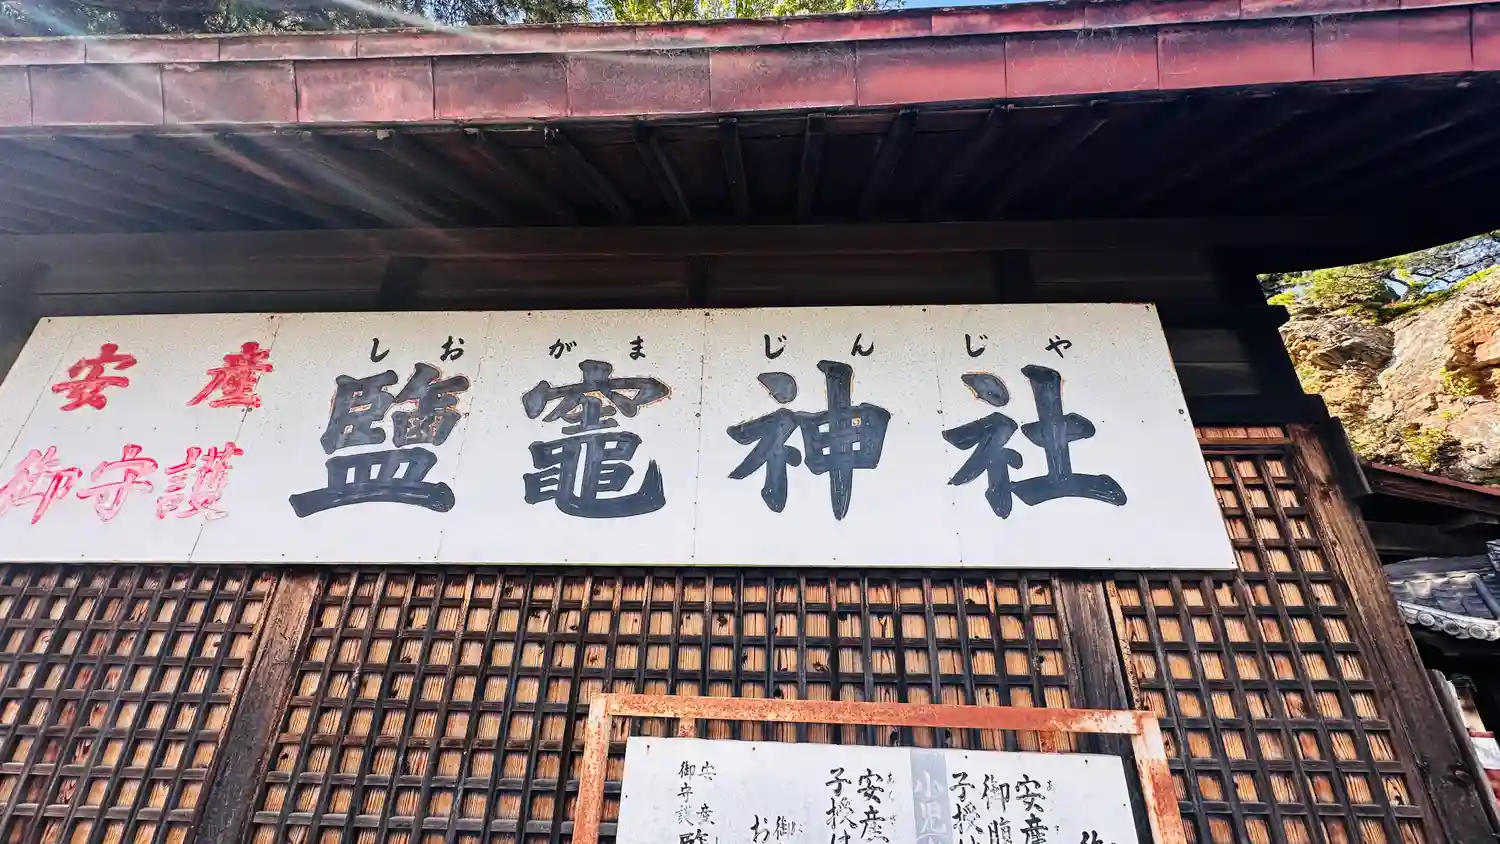 安産
御守護
しおがまじんじゃ
鹽竈神社
安産
御腹
子授け
小児
安産
子授け
御
お
安産
御守護